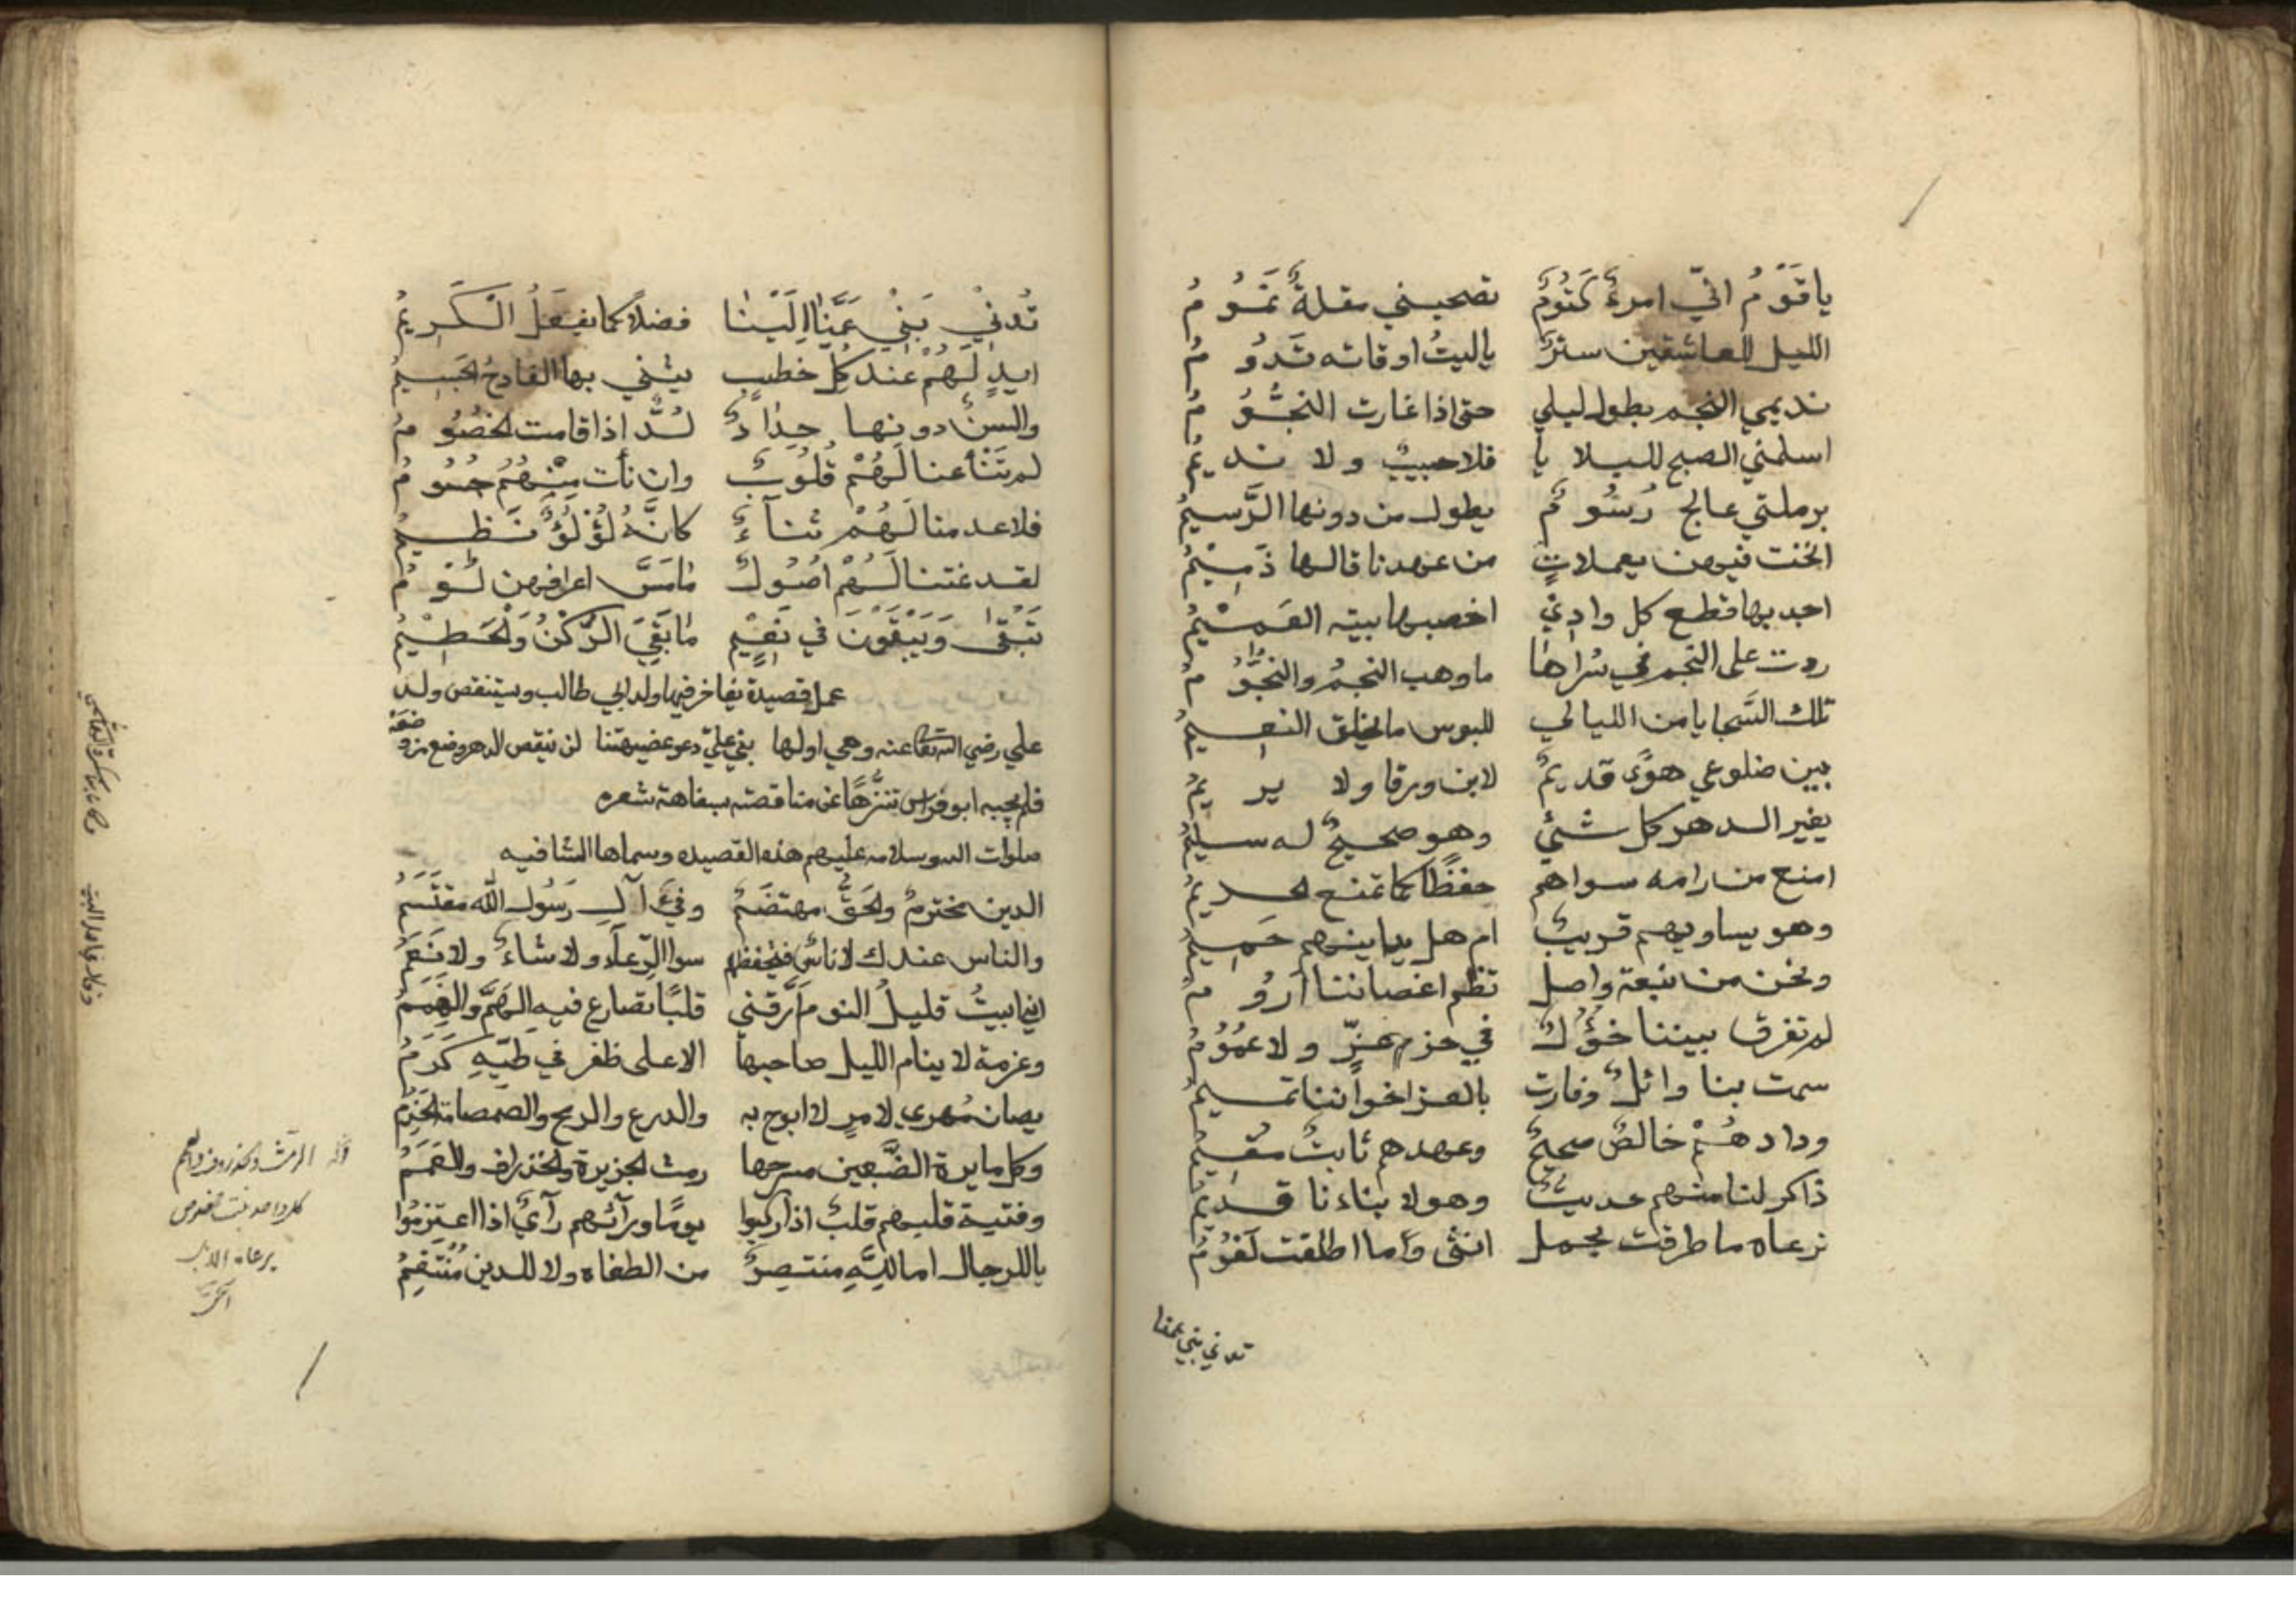 يا قَوْمُ انّي امرءٌ كَتُومٌ تصحبني مقلةٌ نَمُومُ
الليل للعاشقين سترٌ ياليتُ اوقاته تَدُومُ
نديمي النجم بطول ليلي حتى اذا غارت النجُّوُمُ
اسلمني الصبح للبلايا فلا حبيبٌ ولا نديمُ
برملتي عالج رُسُومٌ يطول من دونها الرَّسيمُ
انخت فيهن يعملاتٍ من عهدنا قالها ذَمِيْمُ
اجد بها قطع كل وادِيْ اخصبها بيته العَميْمُ
ردت على النجم في سُراها ما وهب النجمُ والنجُومُ
تلك السَّجايا من الليالي للبوس ما يخلق النعيمُ
بين ضلوعي هوًى قديمٌ لابن ورقا ولا يريمُ
يغير الدهر كل شئيٍ وهو صحيحٌ له سليمُ
امنع من رامه سواهم حفظًا كما تمنع الحريمُ
وهو يساويهم قريبٌ ام هل يدانيهم حَمِيمُ
ونحن من نبعة واصل تظم اغصاننا ارُومُ
لم تفرق بيننا خؤُلٌ في حزم عزٍّ ولا عمُوُمُ
سمت بنا وائلٌ وفارت بالعز اخواننا تميمُ
ودادهُمْ خالصٌ صحيحٌ وعهدهم ثابتٌ مقيمُ
ذاكر لنا منهم حديثٌ وهو لابناءنا قديمُ
نرعاه ما طرقت بحمل انثى وَاما اطلقت لَغُومُ
تدني بني عمنا
تُدنيْ بَنِيْ عَمِّنَا اِلَيْنَا فضلاً كما يفعَلُ الْكَرِيمُ
ايدٍ لَهُمْ عند كل خطبٍ يثني بها الفادحُ الجَسِيمُ
والسنٌ دونها حِدَادٌ لُدٌّ اذا قامت الخصُومُ
لم تَنْأ عنا لَهُمْ قُلُوبٌ وان نأت مِنْهُمُ جسُومُ
فلا عدمنا لَهُمْ ثنآءً كانَّهُ لُؤْلُؤٌ نَظِيمُ
لقد غتنا لَهُمْ اصُولٌ مَا مَسَّ اعرافهن لُوْمُ
تَبْقى وَيَبْقَوْنَ في نَعِيْمٍ مَا بَقِيَ الرُّكْنُ وَالْحَطِيْمُ
عمل قصيدة يفاخر فيها ولد ابي طالب ويستنقص ولد
علي رضي الله تعالى عنه وهي اولها بني علي دعو عضيهتنا لن ينقص الدهر وضع من وضعه
فلم يجبه ابو فراس تنزُّهًا عن مناقضته بسفاهة شعره
صلوات الله وسلامه عليهم هذه القصيده وسماها الشافيه
الدين مخترمٌ والحَقُّ مهتضَمُ وفيْءُ آلِ رَسُول الله مقتَسَمُ
والناس عندك لا ناسٌ فيحفظهم سوا الرِّعآءِ ولا شاءٌ ولا نَعَمُ
اني ابيتُ قليلُ النوم اَرّقني قلبًا تصارع فيهِ الهَمَّ والهِمَمُ
وعزمة لا ينام الليل صاحبها الا على ظفر في طيّهِ كَرَمُ
يصان مُهري لامرٍ لا ابوح به والدرع والرمح والصمصامة الخَذِمُ
وكل مايرة الضَّبعين مسرحها رمث الجزيرة والخذراف والعَنَمُ
وفتية قلبهم قلبٌ اذا ركبوا يومًا ورآئهم رآيٌ اذا اعتزمُوا
ياللرجال اما لِلّهِ منتصِرٌ من الطغاه ولا للدين مُنْتَقِمُ